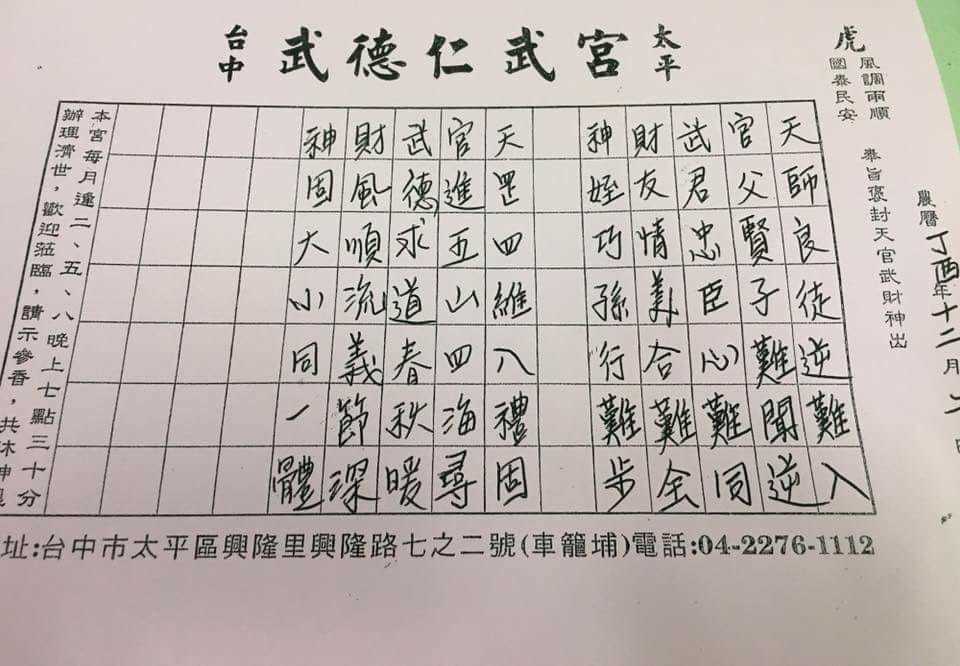 台中 武德仁武宮 太平
農曆丁酉年十二月
虎
風調雨順
國泰民安
奉旨褒封天官武財神出
天師良徒逆難入
官父賢子難聞逆
武君忠臣心難同
財友情美合難全
神姪巧孫行難步
天罡四維入禮固
官進五山四海尋
武德求道春秋暖
財風順流義節深
神固大小同一體
本宮每月逢二、五、八晚上七點三十分
辦理濟世，歡迎蒞臨，請示參香，共沐神
址:台中市太平區興隆里興隆路七之二號(車籠埔)電話:04-2276-1112